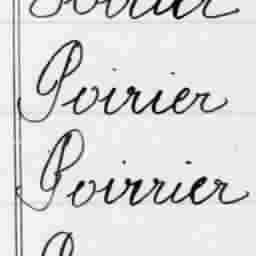 Poirier
Poirrier